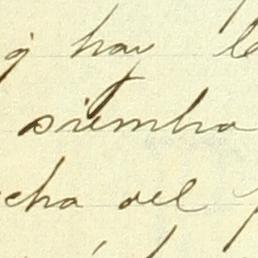 q hay
siembra
cha del